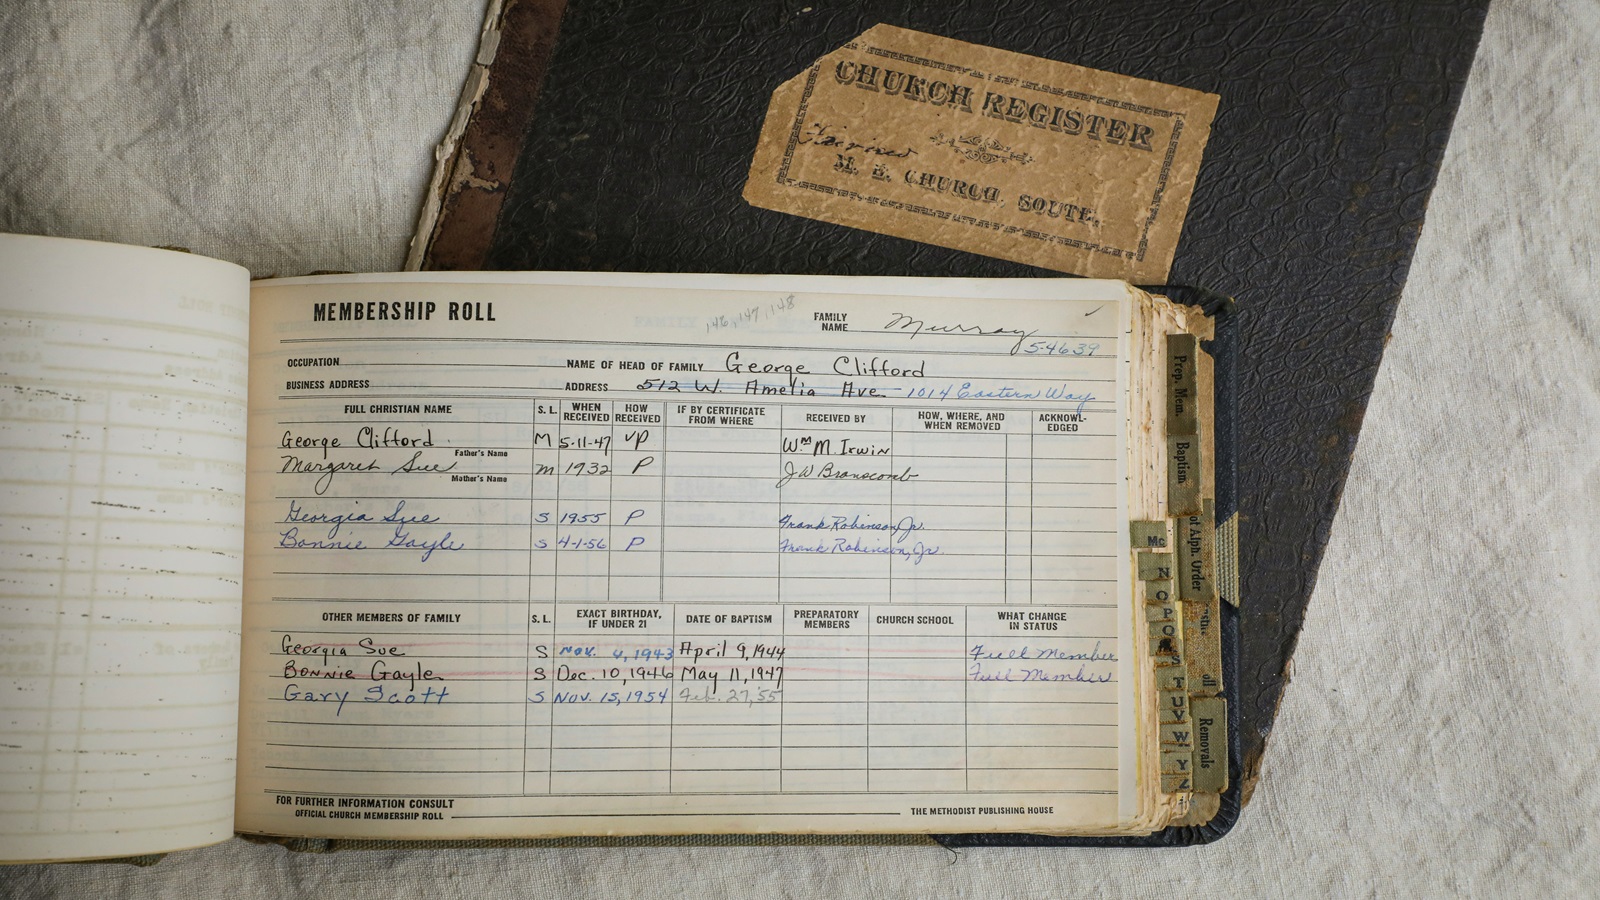 CHURCH REGISTER
M. E. CHURCH, SOUTH,
MEMBERSHIP ROLL 146, 147, 148 FAMILY NAME Murray
5-4639
OCCUPATION NAME OF HEAD OF FAMILY George Clifford
BUSINESS ADDRESS ADDRESS 512 W. Amelia Ave 1014 Eastern Way
FULL CHRISTIAN NAME S. L. WHEN RECEIVED HOW RECEIVED IF BY CERTIFICATE FROM WHERE RECEIVED BY HOW, WHERE, AND WHEN REMOVED ACKNOWL- EDGED
George Clifford M 5-11-47 VP Wm M. Irwin
Father's Name
Margaret Sue m 1932 P J W Branscomb
Mother's Name
Georgia Sue S 1955 P Frank Robinson, Jr.
Bonnie Gayle S 4-1-56 P Frank Robinson, Jr
OTHER MEMBERS OF FAMILY S. L. EXACT BIRTHDAY, IF UNDER 21 DATE OF BAPTISM PREPARATORY MEMBERS CHURCH SCHOOL WHAT CHANGE IN STATUS
Georgia Sue S Nov. 4, 1943 April 9, 1944 Full Member
Bonnie Gayle S Dec. 10, 1946 May 11, 1947 Full Member
Gary Scott S Nov. 15, 1954 Feb. 27, '55
FOR FURTHER INFORMATION CONSULT
OFFICIAL CHURCH MEMBERSHIP ROLL THE METHODIST PUBLISHING HOUSE
Prep. Mem.
Baptism
of Alph. Order
Removals
Mc
N
O
P
Q
S
T
U
V
W
Y
Z